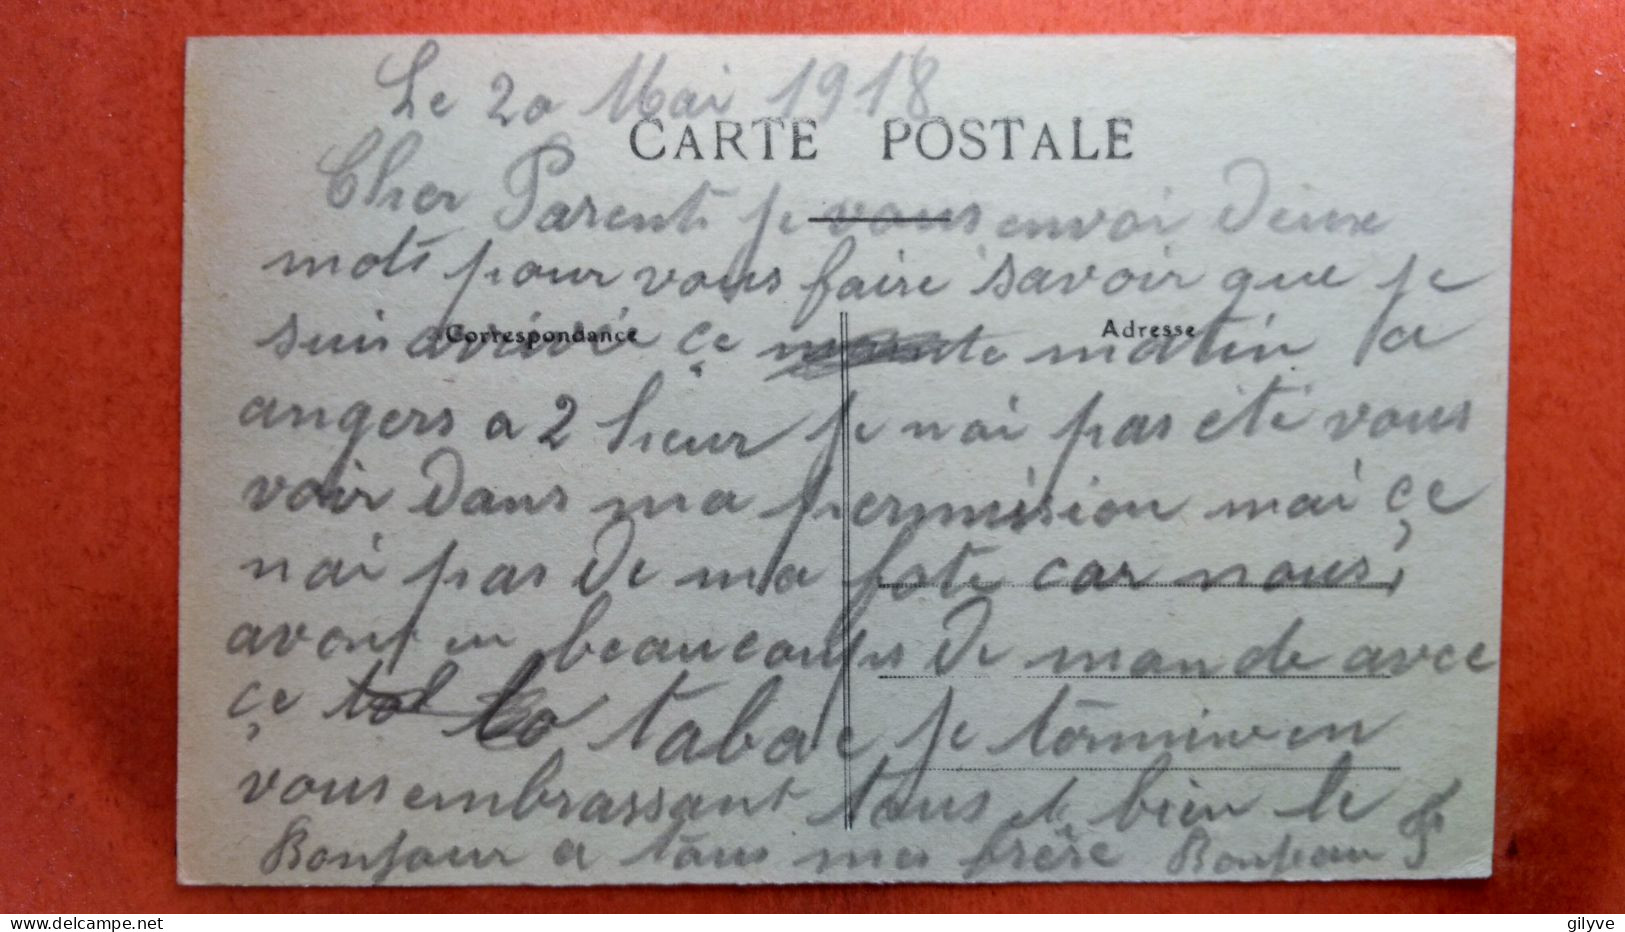 Le 20 Mai 1918
CARTE POSTALE
Cher Parents je vous envoi deux
mots pour vous faire savoir que je
suis arrivé çe matin a
Correspondance
Adresse
angers a 2 heur je nai pas été vous
voir dans ma permission mai çe
nai pas de ma fote car nous
avons eu beaucoups de monde avec
çe tabac je termine en
vous embrassant tous et bien le
Bonjour a tous mes frère Bonjeau
gilyve